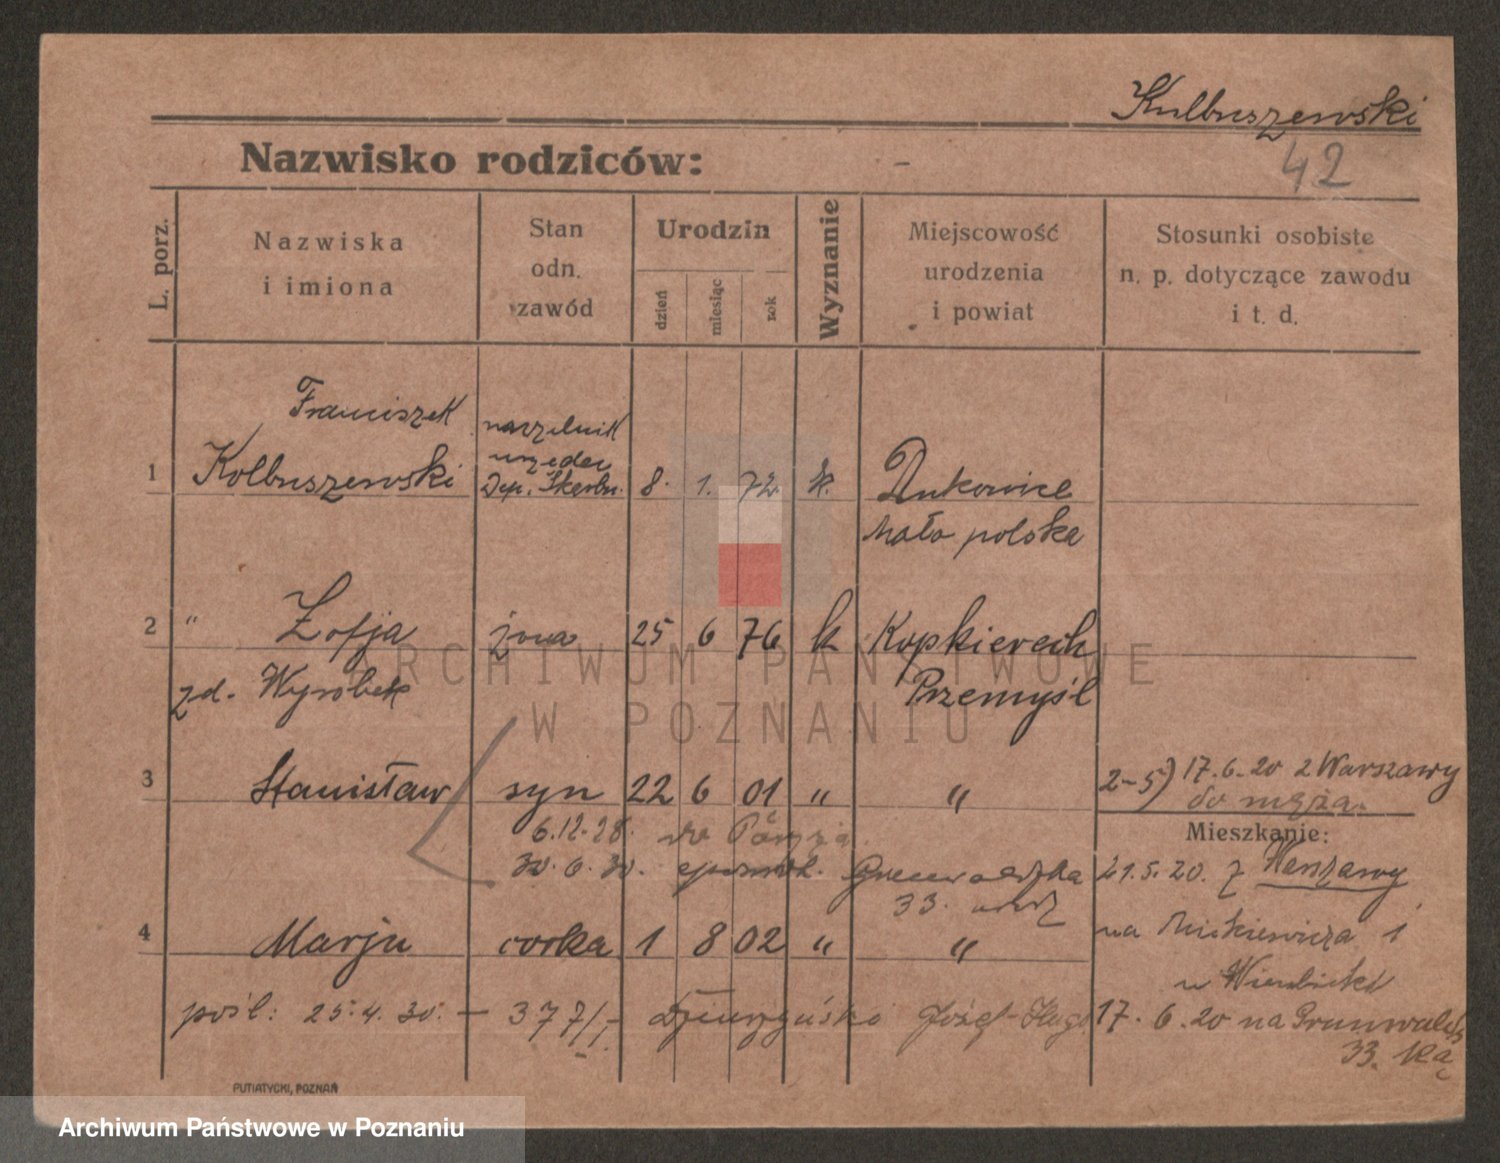 Kolbuszewski
42
Nazwisko rodziców: -
L. porz.
Nazwiska i imiona
Stan odn. zawód
Urodzin
dzień
miesiąc
rok
Wyznanie
Miejscowość urodzenia i powiat
Stosunki osobiste n. p. dotyczące zawodu i t. d.
Franciszek
naczelnik
1 Kolbuszewski Dep. Skarbu. 8. 1. 72 k.
Mało polska
2 " Zofja żona 25 6 76 k
zd. Wyrobek Przemyśl
3 Stanisław syn 22 6 01 " " 2-5) 17.6.20 z Warszawy
do męża.
6.12.28. do
Mieszkanie:
30.6.30. Grunwaldzka 21.5.20. z Warszawy
33.
4 Marja corka 1 8 02 " " na Mickiewicza 1
pośl: 25.4.30. - 377/ Józef 17.6.20 na Grunwaldz
33.
PUTIATYCKI, POZNAŃ
ARCHIWUM PAŃSTWOWE
W POZNANIU
Archiwum Państwowe w Poznaniu